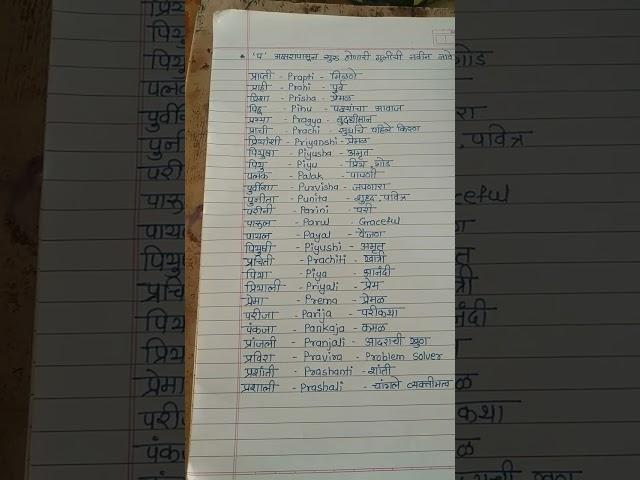 * 'प' अक्षरापासून सुरु होणारी मुलींची नवीन नावे
प्राप्ती - Prapti - मिळणे
प्राही - Prahi - पूर्व
प्रिशा - Prisha - प्रेमळ
पिहू - Pihu - पक्ष्यांचा आवाज
प्रग्या - Pragya - बुद्धीमान
प्राची - Prachi - सूर्याचे पहिले किरण
प्रियांशी - Priyanshi - प्रेमळ
पियुषा - Piyusha - अमृत
पियु - Piyu - प्रिय, गोड
पलक - Palak - पापणी
पुर्वीशा - Purvisha - जपणारा
पुनीता - Punita - शुद्ध, पवित्र
परीनी - Parini - परी
पारुल - Parul - Graceful
पायल - Payal - पैंजण
पियुषी - Piyushi - अमृत
प्रचिती - Prachiti - खात्री
पिया - Piya - आनंदी
प्रियाली - Priyali - प्रेम
प्रेमा - Prema - प्रेमळ
परीजा - Parija - परीकथा
पंकजा - Pankaja - कमळ
प्रांजली - Pranjali - आदराची खुण
प्रविरा - Pravira - Problem solver
प्रशांती - Prashanti - शांती
प्रशाली - Prashali - चांगले व्यक्तीमत्व